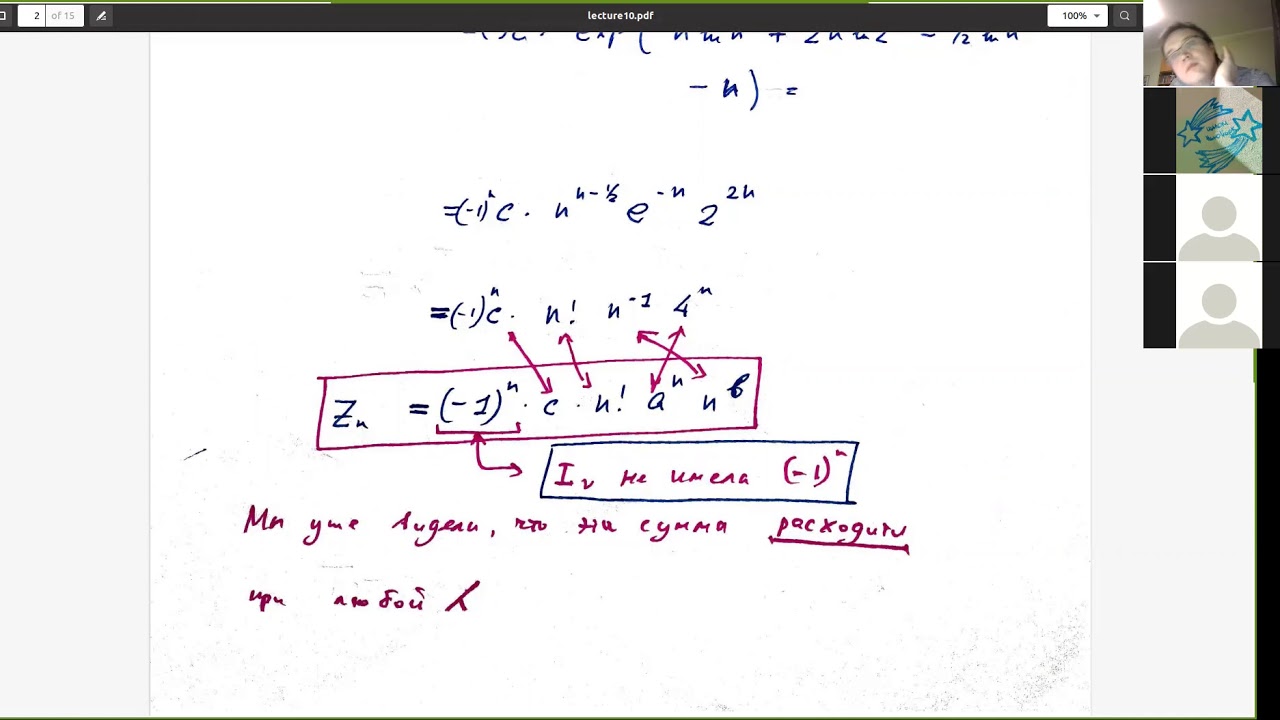 2 of 15 lecture10.pdf 100%
- n) =
=(-1)ⁿ c · n^{n-1/2} e^{-n} 2^{2n}
=(-1)ⁿ c · n! n^{-1} 4ⁿ
Zₙ = (-1)ⁿ · c · n! aⁿ n^b
I_ν не имела (-1)ⁿ
Мы уже видели, что эта сумма расходится
при любой λ